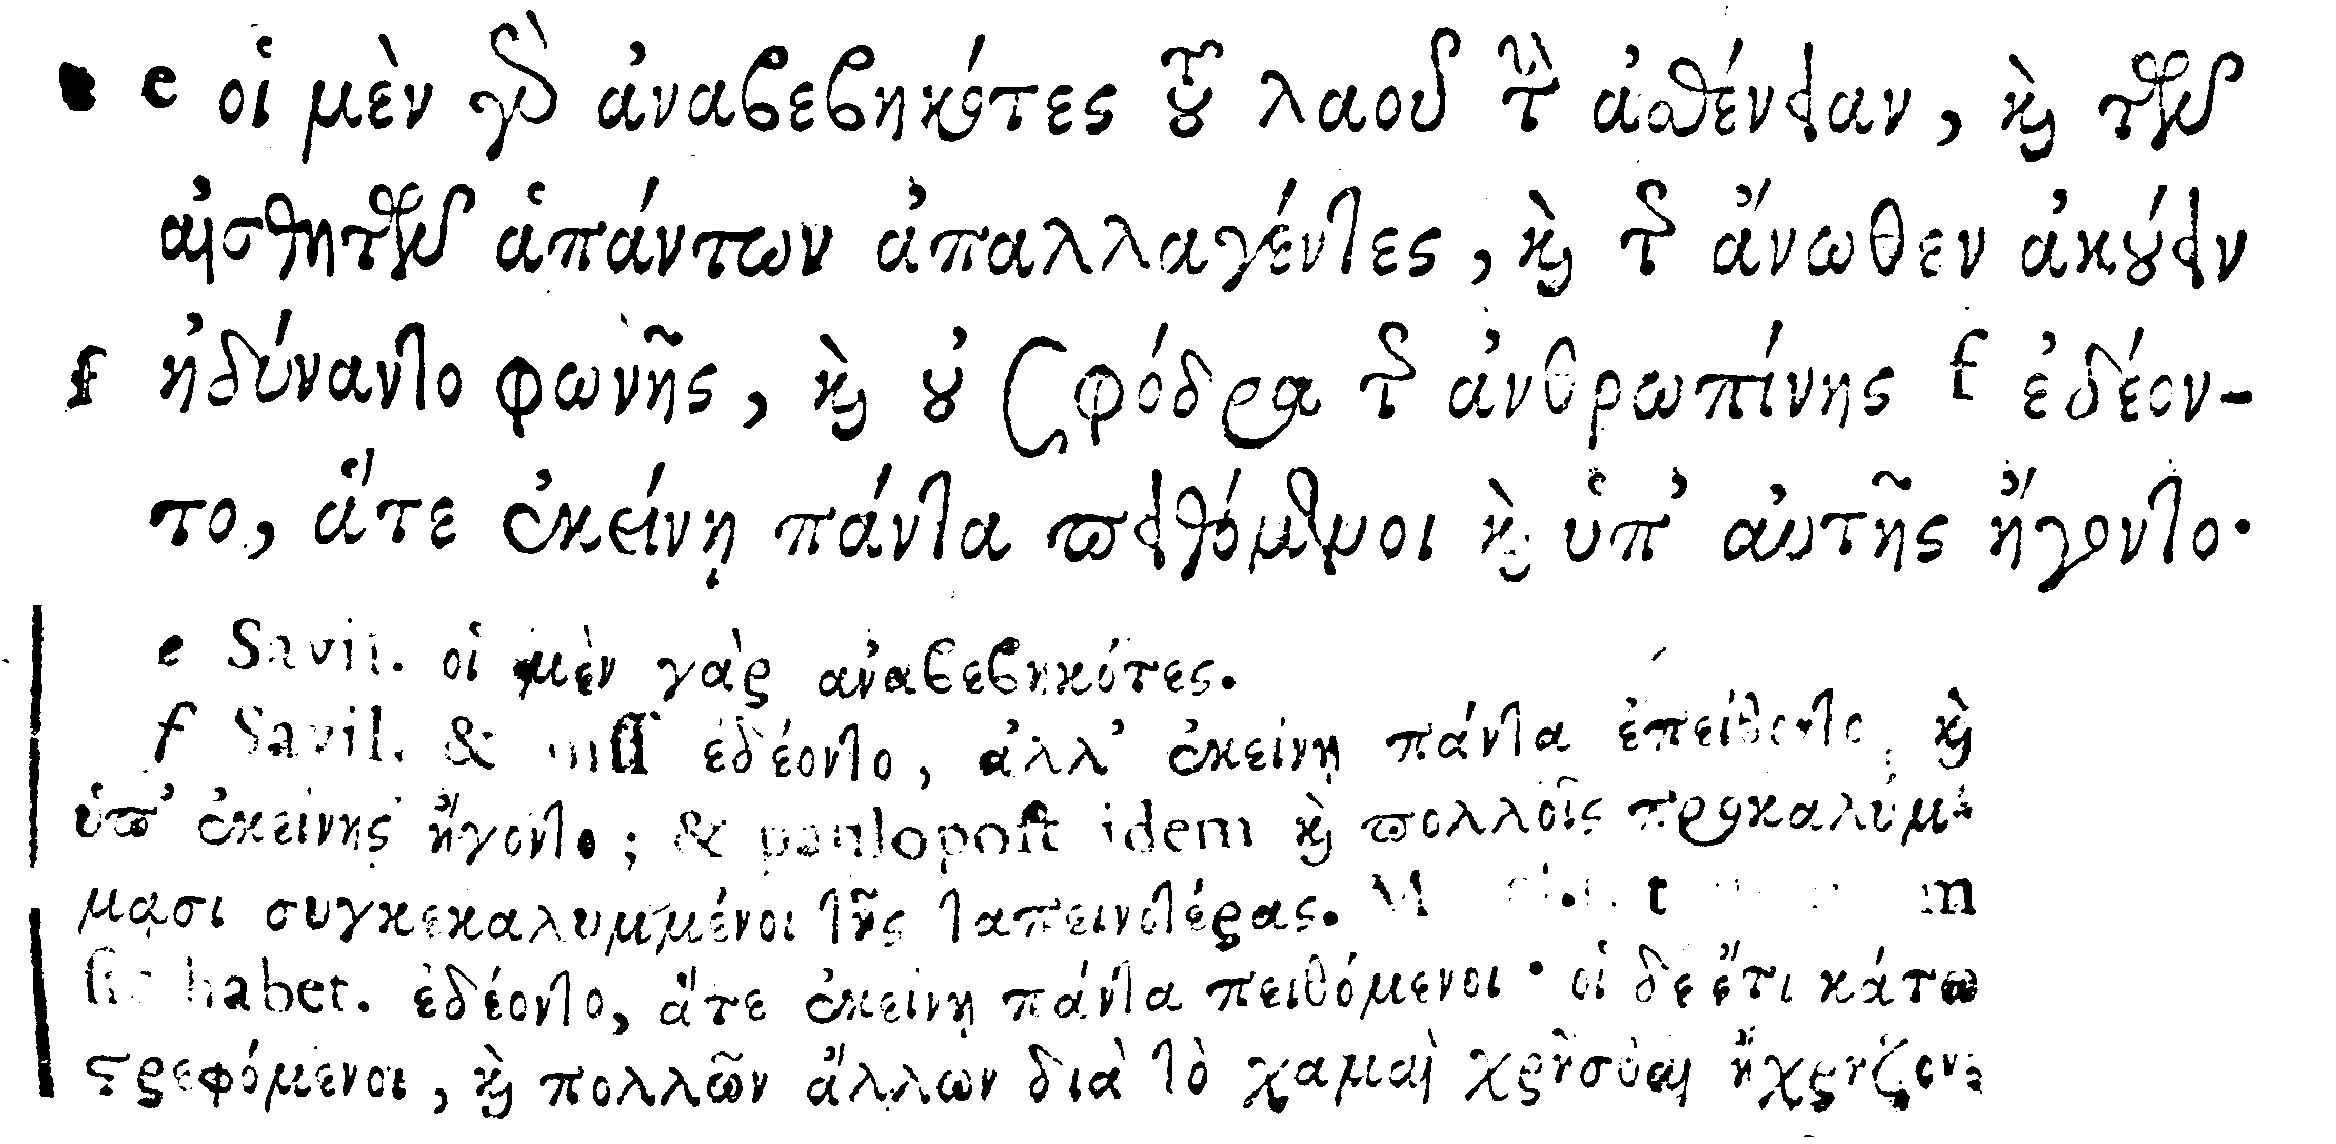 e οἱ μὲν γὰρ ἀναβεβηκότες τοῦ λαοῦ τὴν ἀσθένειαν, καὶ τῶν
αἰσθητῶν ἁπάντων ἀπαλλαγέντες, καὶ τῆς ἄνωθεν ἀκούειν
f ἠδύναντο φωνῆς, καὶ οὐ σφόδρα τῆς ἀνθρωπίνης f ἐδέον-
το, ἅτε ἐκείνῃ πάντα πειθόμενοι καὶ ὑπ’ αὐτῆς ἤγοντο·
e Savil. οἱ μὲν γὰρ ἀναβεβηκότες.
f Savil. & mss ἐδέοντο, ἀλλ’ ἐκείνῃ πάντα ἐπείθοντο, καὶ
ὑπ’ ἐκείνης ἤγοντο; & paulopost idem καὶ πολλοῖς προκαλύμ-
μασι συγκεκαλυμμένοι τῆς ταπεινοτέρας.
sic habet. ἐδέοντο, ἅτε ἐκείνῃ πάντα πειθόμενοι· οἱ δὲ ἔτι κάτω
στρεφόμενοι, καὶ πολλῶν ἄλλων διὰ τὸ χαμαὶ